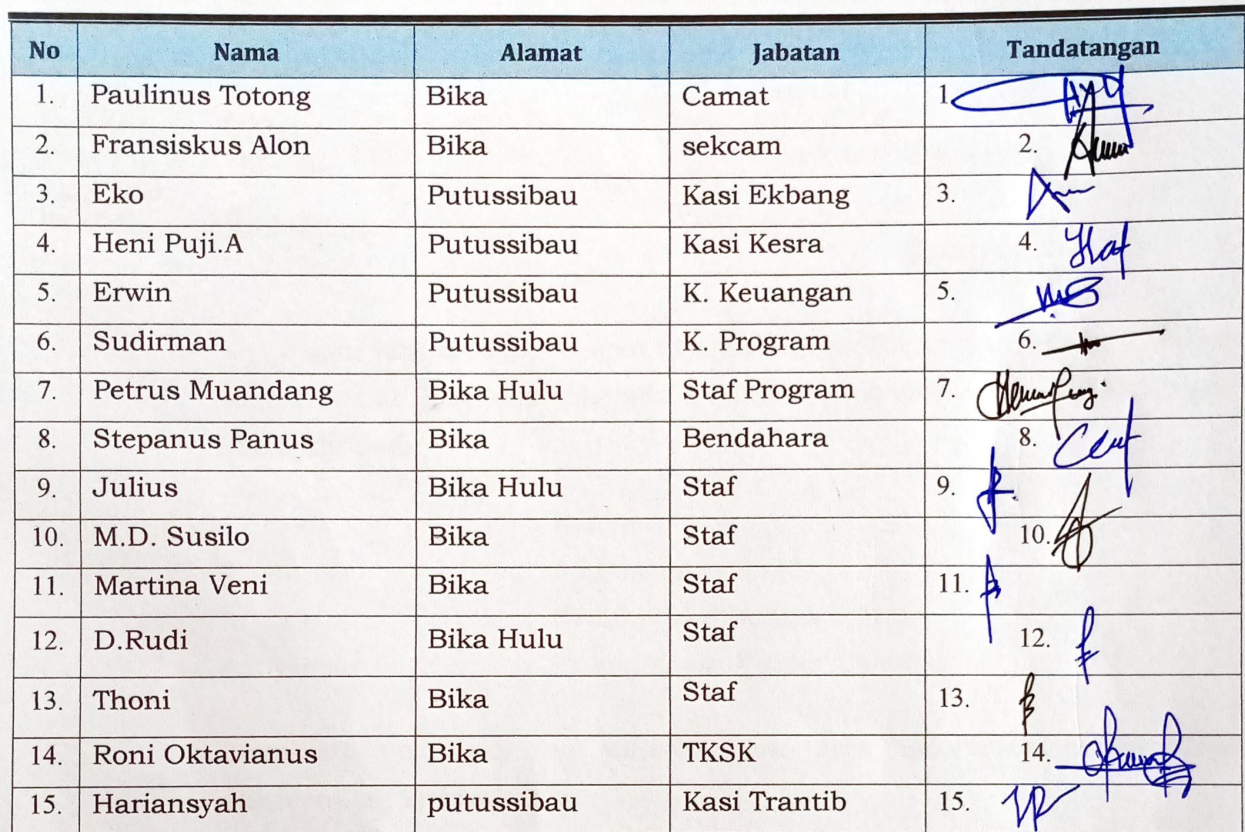 No Nama Alamat Jabatan Tandatangan
1. Paulinus Totong Bika Camat 1.
2. Fransiskus Alon Bika sekcam 2.
3. Eko Putussibau Kasi Ekbang 3.
4. Heni Puji.A Putussibau Kasi Kesra 4.
5. Erwin Putussibau K. Keuangan 5.
6. Sudirman Putussibau K. Program 6.
7. Petrus Muandang Bika Hulu Staf Program 7.
8. Stepanus Panus Bika Bendahara 8.
9. Julius Bika Hulu Staf 9.
10. M.D. Susilo Bika Staf 10.
11. Martina Veni Bika Staf 11.
12. D.Rudi Bika Hulu Staf 12.
13. Thoni Bika Staf 13.
14. Roni Oktavianus Bika TKSK 14.
15. Hariansyah putussibau Kasi Trantib 15.